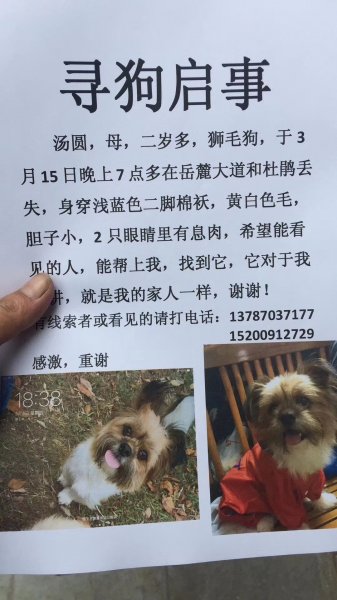 寻狗启事
汤圆，母，二岁多，狮毛狗，于3
月15日晚上7点多在岳麓大道和杜鹃丢
失，身穿浅蓝色二脚棉袄，黄白色毛，
胆子小，2只眼睛里有息肉，希望能看
见的人，能帮上我，找到它，它对于我
讲，就是我的家人一样，谢谢！
有线索者或看见的请打电话：13787037177
15200912729
感激，重谢
18:38